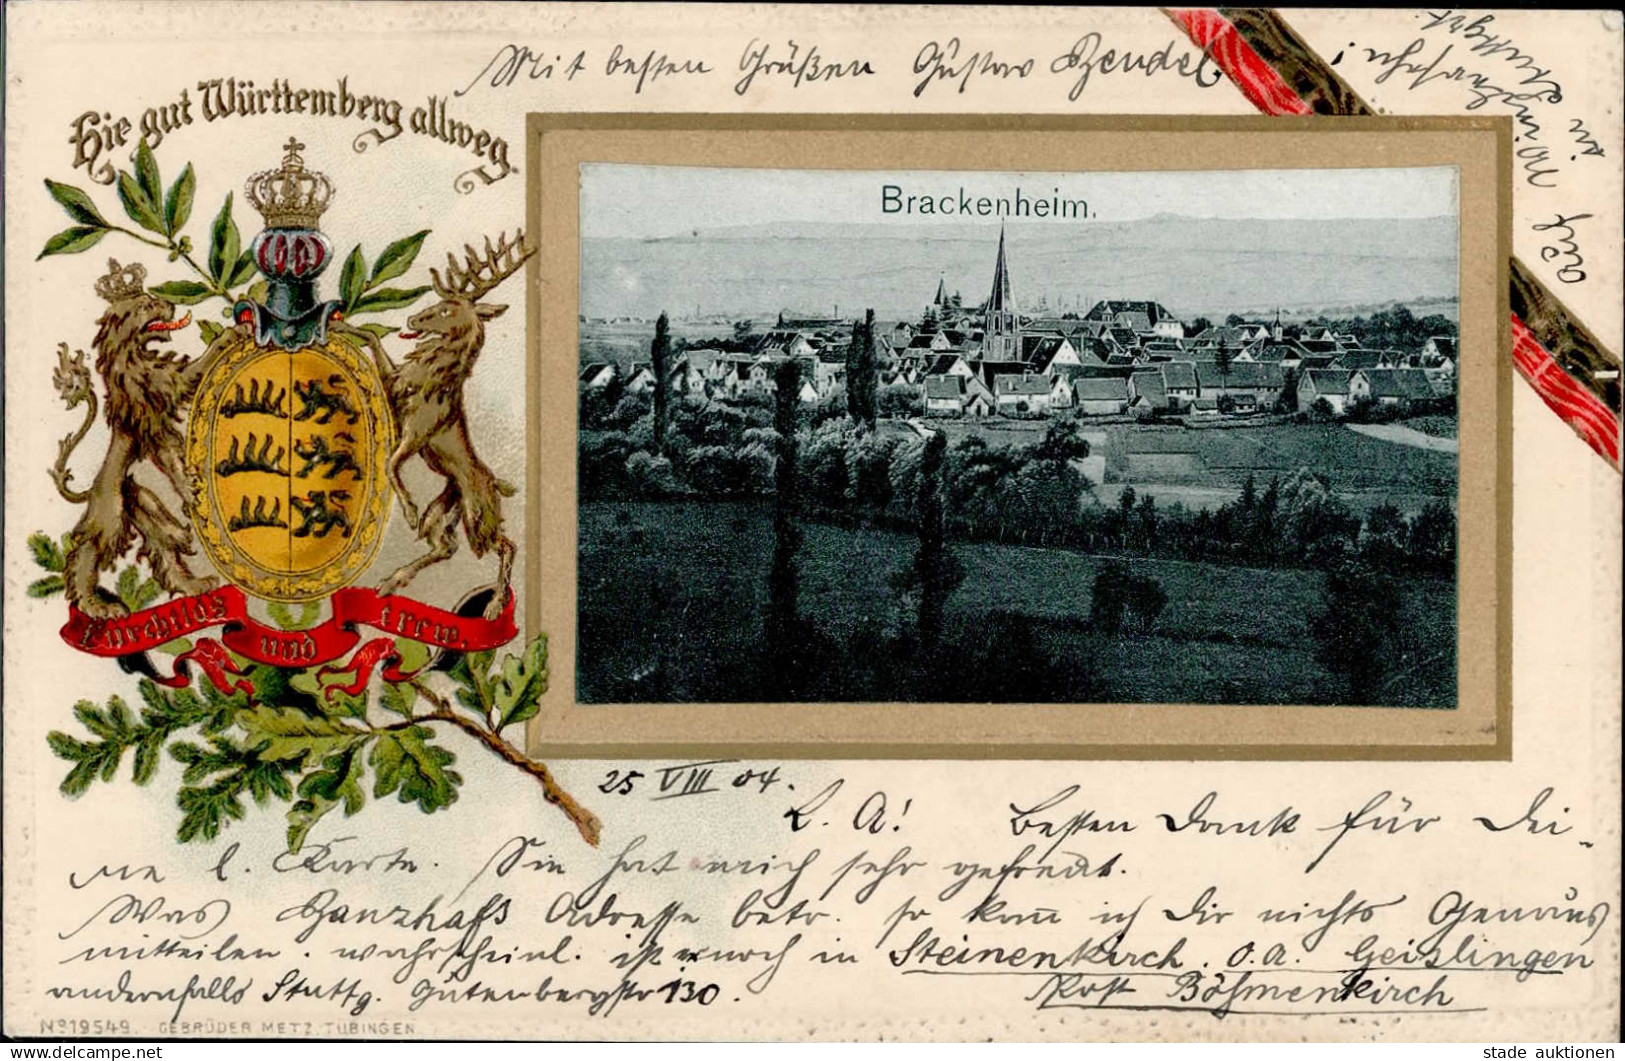 Mit besten Grüßen Gustav Bendel
Auf Wiedersehen
in Stuttgart
Hie gut Württemberg allweg.
Brackenheim.
Furchtlos und trew.
25 VIII 04.
L. A! Besten Dank für Dei-
ne l. Karte. Sie hat mich sehr gefreut.
Was Banzhafs Adresse betr. so kann ich Dir nichts Genaues
mitteilen. wahrscheinl. ist er noch in Steinenkirch. O.A. Geislingen
andernfalls Stuttg. Gutenbergstr 130. Post Böhmenkirch
No 19549. GEBRÜDER METZ, TÜBINGEN
stade auktionen
https://www.delcampe.net